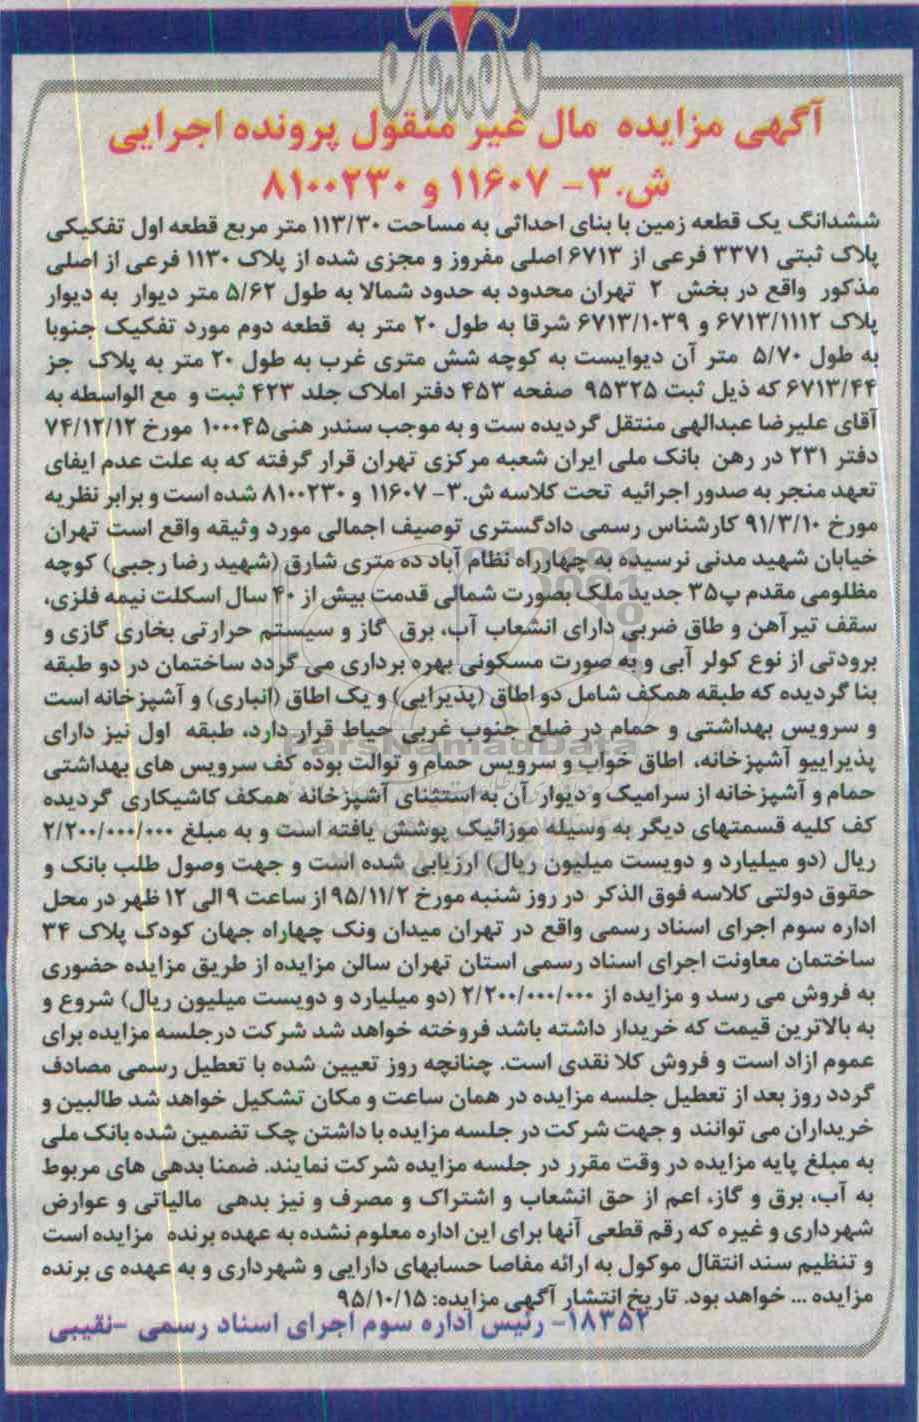 آگهی مزایده مال غیر منقول پرونده اجرایی
ش.۳- ۱۱۶۰۷ و ۸۱۰۰۲۳۰
ششدانگ یک قطعه زمین با بنای احداثی به مساحت ۱۱۳/۳۰ متر مربع قطعه اول تفکیکی
پلاک ثبتی ۳۳۷۱ فرعی از ۶۷۱۳ اصلی مفروز و مجزی شده از پلاک ۱۱۳۰ فرعی از اصلی
مذکور واقع در بخش ۲ تهران محدود به حدود شمالا به طول ۵/۶۲ متر دیوار به دیوار
پلاک ۶۷۱۳/۱۱۱۲ و ۶۷۱۳/۱۰۳۹ شرقا به طول ۲۰ متر به قطعه دوم مورد تفکیک جنوبا
به طول ۵/۷۰ متر آن دیوایست به کوچه شش متری غرب به طول ۲۰ متر به پلاک جز
۶۷۱۳/۴۴ که ذیل ثبت ۹۵۳۲۵ صفحه ۴۵۳ دفتر املاک جلد ۴۲۳ ثبت و مع الواسطه به
آقای علیرضا عبدالهی منتقل گردیده ست و به موجب سندر هنی۱۰۰۰۴۵ مورخ ۷۴/۱۲/۱۲
دفتر ۲۳۱ در رهن بانک ملی ایران شعبه مرکزی تهران قرار گرفته که به علت عدم ایفای
تعهد منجر به صدور اجرائیه تحت کلاسه ش.۳- ۱۱۶۰۷ و ۸۱۰۰۲۳۰ شده است و برابر نظریه
مورخ ۹۱/۳/۱۰ کارشناس رسمی دادگستری توصیف اجمالی مورد وثیقه واقع است تهران
خیابان شهید مدنی نرسیده به چهارراه نظام آباد ده متری شارق (شهید رضا رجبی) کوچه
مظلومی مقدم پ۳۵ جدید ملک بصورت شمالی قدمت بیش از ۴۰ سال اسکلت نیمه فلزی،
سقف تیرآهن و طاق ضربی دارای انشعاب آب، برق گاز و سیستم حرارتی بخاری گازی و
برودتی از نوع کولر آبی و به صورت مسکونی بهره برداری می گردد ساختمان در دو طبقه
بنا گردیده که طبقه همکف شامل دو اطاق (پذیرایی) و یک اطاق (انباری) و آشپزخانه است
و سرویس بهداشتی و حمام در ضلع جنوب غربی حیاط قرار دارد، طبقه اول نیز دارای
پذیراییو آشپزخانه، اطاق خواب و سرویس حمام و توالت بوده کف سرویس های بهداشتی
حمام و آشپزخانه از سرامیک و دیوار آن به استثنای آشپزخانه همکف کاشیکاری گردیده
کف کلیه قسمتهای دیگر به وسیله موزائیک پوشش یافته است و به مبلغ ۲/۲۰۰/۰۰۰/۰۰۰
ریال (دو میلیارد و دویست میلیون ریال) ارزیابی شده است و جهت وصول طلب بانک و
حقوق دولتی کلاسه فوق الذکر در روز شنبه مورخ ۹۵/۱۱/۲ از ساعت ۹ الی ۱۲ ظهر در محل
اداره سوم اجرای اسناد رسمی واقع در تهران میدان ونک چهاراه جهان کودک پلاک ۳۴
ساختمان معاونت اجرای اسناد رسمی استان تهران سالن مزایده از طریق مزایده حضوری
به فروش می رسد و مزایده از ۲/۲۰۰/۰۰۰/۰۰۰ (دو میلیارد و دویست میلیون ریال) شروع و
به بالاترین قیمت که خریدار داشته باشد فروخته خواهد شد شرکت درجلسه مزایده برای
عموم ازاد است و فروش کلا نقدی است. چنانچه روز تعیین شده با تعطیل رسمی مصادف
گردد روز بعد از تعطیل جلسه مزایده در همان ساعت و مکان تشکیل خواهد شد طالبین و
خریداران می توانند و جهت شرکت در جلسه مزایده با داشتن چک تضمین شده بانک ملی
به مبلغ پایه مزایده در وقت مقرر در جلسه مزایده شرکت نمایند. ضمنا بدهی های مربوط
به آب، برق و گاز، اعم از حق انشعاب و اشتراک و مصرف و نیز بدهی مالیاتی و عوارض
شهرداری و غیره که رقم قطعی آنها برای این اداره معلوم نشده به عهده برنده مزایده است
و تنظیم سند انتقال موکول به ارائه مفاصا حسابهای دارایی و شهرداری و به عهده ی برنده
مزایده ... خواهد بود. تاریخ انتشار آگهی مزایده: ۹۵/۱۰/۱۵
۱۸۳۵۲- رئیس اداره سوم اجرای اسناد رسمی -نقیبی
ParsNamadData